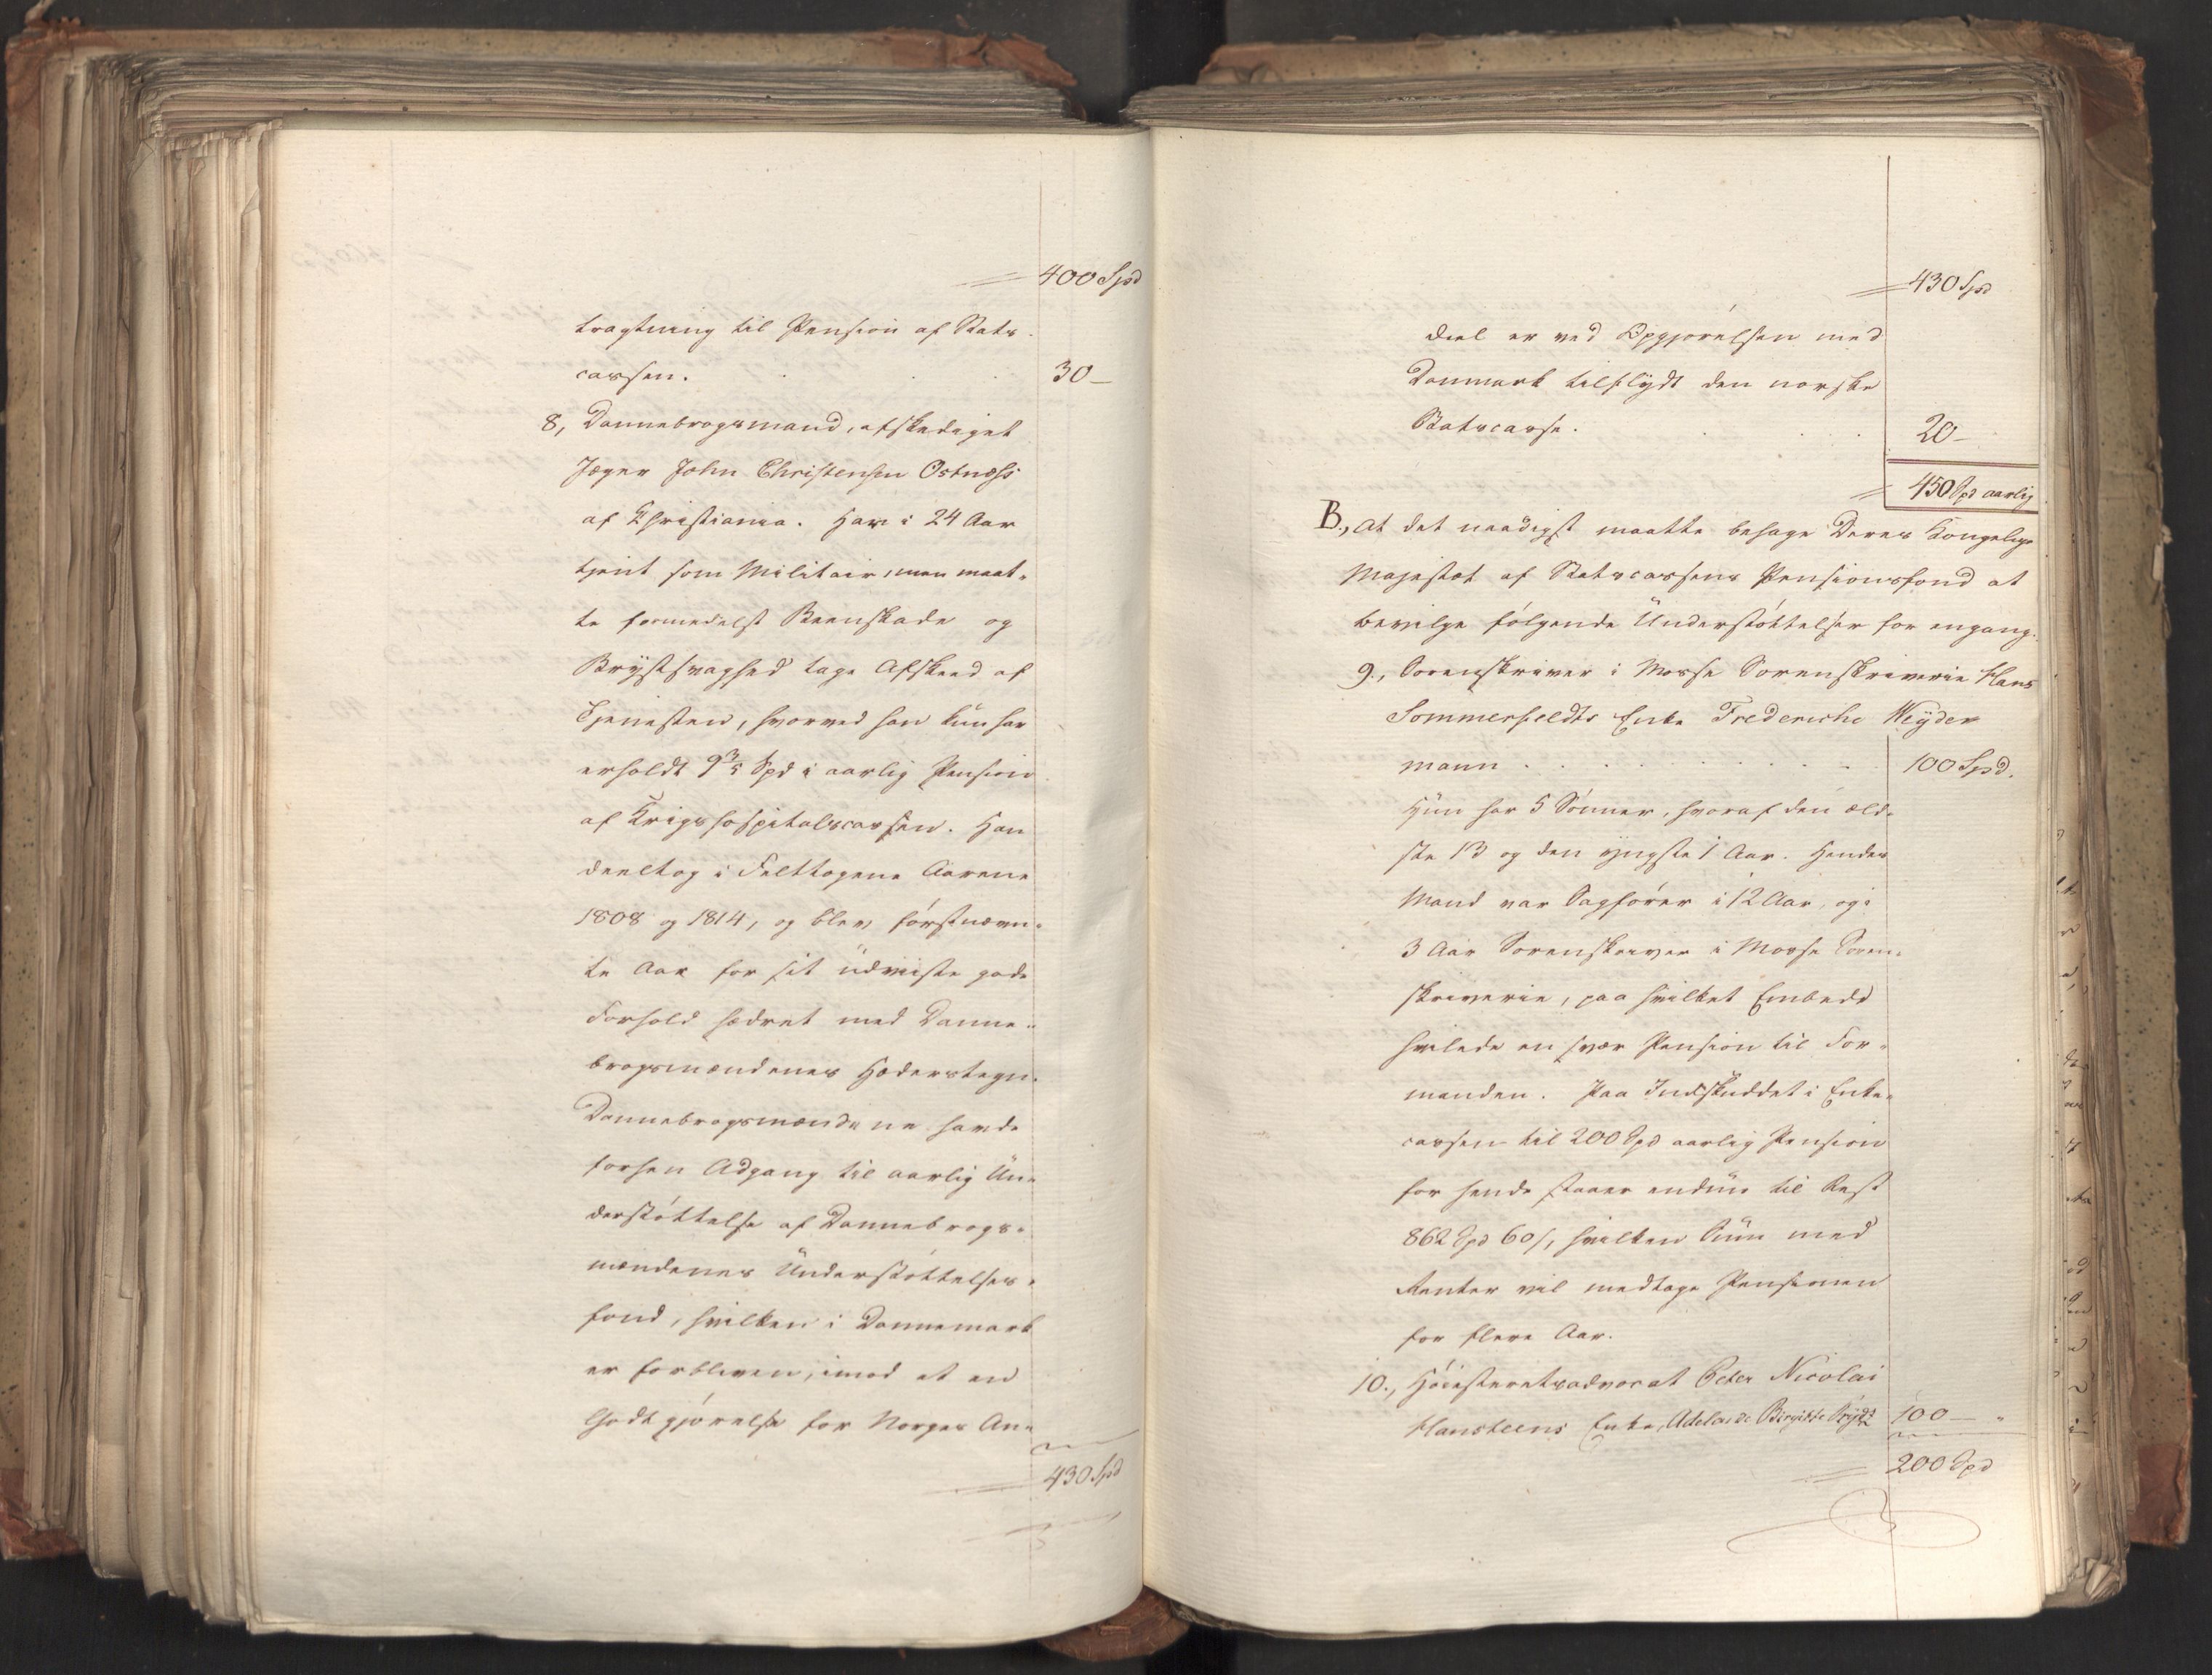 400 Spd
tragtning til Pension af Stats-
cassen. 30 –
8, Dannebrogsmand, afskediget
Jæger John Christensen Ostnæss
af Christiania. Har i 24 Aar
tjent som Militair, men maat-
te formedelst Beenskade og
Brystsvaghed tage Afskeed af
Tjenesten, hvorved han kun har
erholdt 9 3/5 Spd i aarlig Pension
af Krigshospitalscassen. Han
deeltog i Felttogene Aarene
1808 og 1814, og blev förstnævn-
te Aar for sit udviste gode
Forhold hædret med Danne-
brogsmændenes Hæderstegn.
Dannebrogsmændene havde
forhen Adgang til aarlig Un-
derstöttelse af Dannebrogs-
mændenes Understöttelses-
fond, hvilken i Dannemark
er forbleven, imod at en
Godtgjörelse for Norges An-
430 Spd
430 Spd
deel er ved Opgjörelsen med
Danmark tilflydt den norske
Statscasse. 20 –
450 Spd aarlig
B., At det naadigst maatte behage Deres Kongelige
Majestæt af Statscassens Pensionsfond at
bevilge fölgende Understöttelser for engang.
9., Sorenskriver i Mosse Sorenskriverie Hans
Sommerfeldts Enke Frederiche Weyder
mann 100 Spd.
Hun har 5 Sönner, hvoraf den æld-
ste 13 og den yngste 1 Aar. Hendes
Mand var Sagförer i 12 Aar, og i
3 Aar Sorenskriver i Mosse Soren-
skriverie, paa hvilket Embede
hvilede en svær Pension til For-
manden. Paa Indskuddet i Enke-
cassen til 200 Spd aarlig Pension
for hende staaer endnu til Rest
862 Spd 60 s, hvilken Sum med
Renter vil medtage Pensionen
for flere Aar.
10., Höiesteretsadvocat Peter Nicolai
Hansteens Enke, Adelaide Birgitte 100 – "
200 Spd